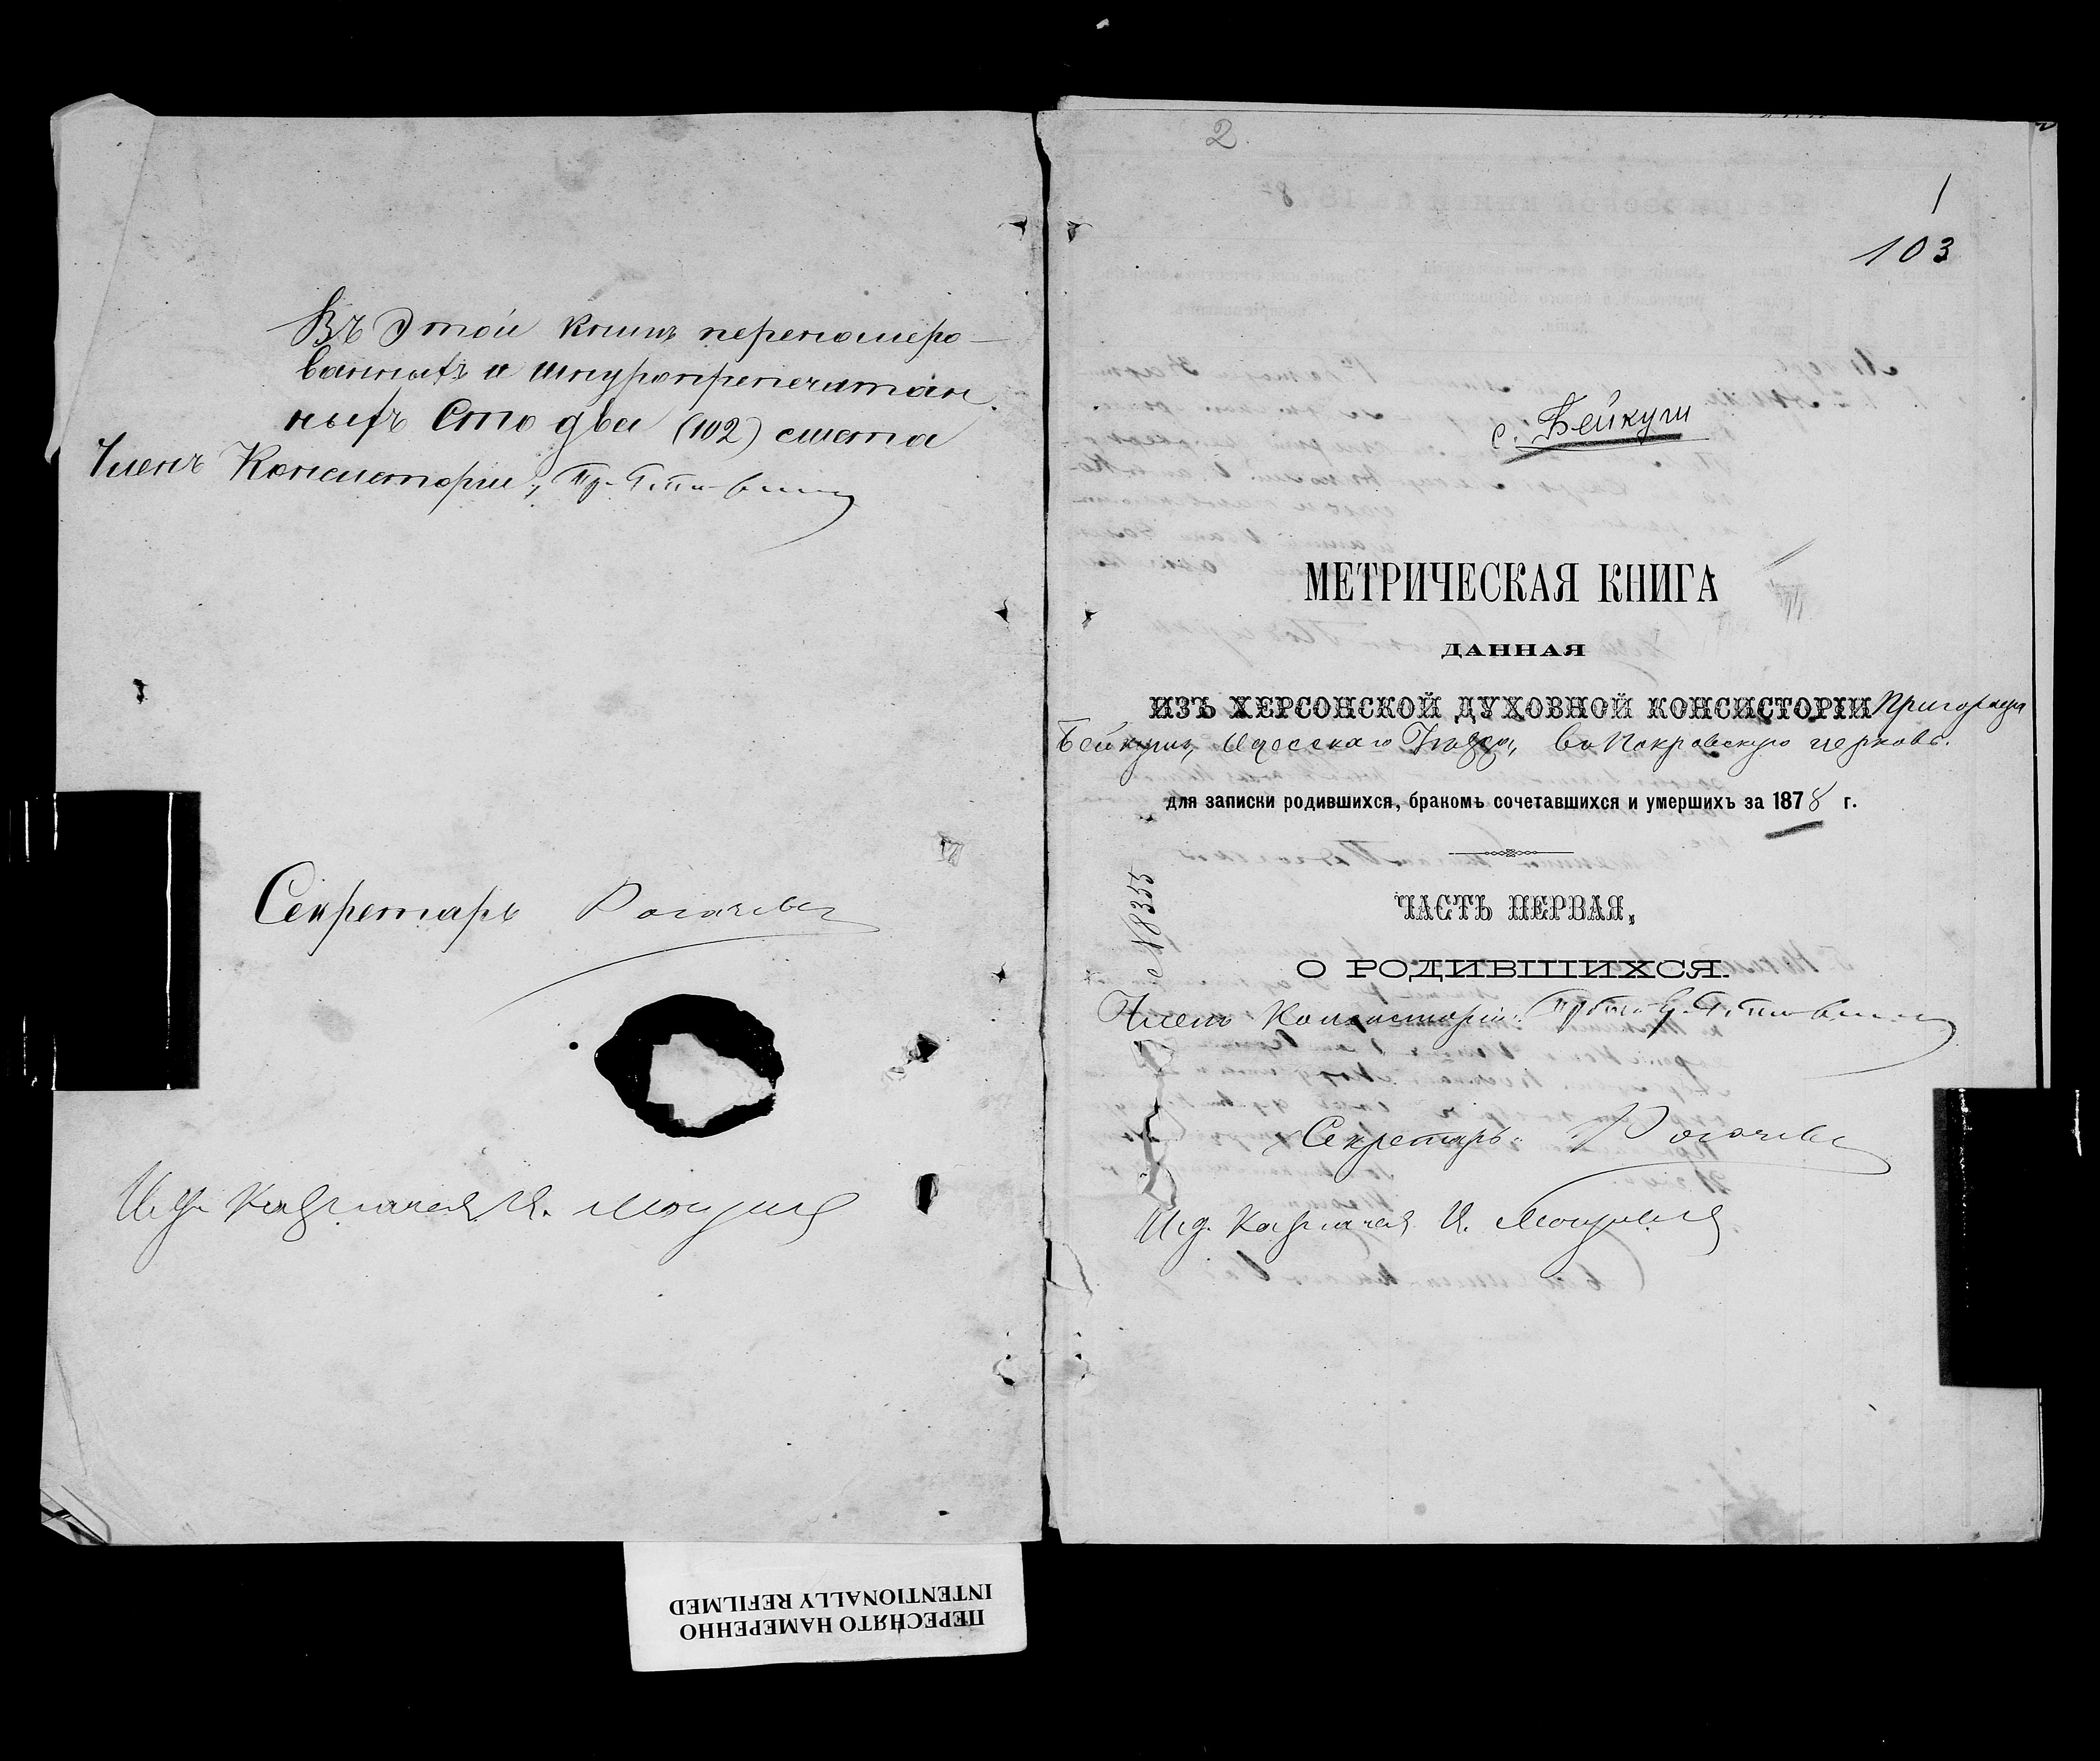 Въ этой книгѣ перенумеро-
ванныхъ и шнуропрепечатан-
ныхъ Сто два (102) листа
Членъ Консисторіи,
Секретарь Рогачевъ
И. д. Казначея И.
2
1
103
с. Бейкуши
МЕТРИЧЕСКАЯ КНИГА
ДАННАЯ
ИЗЪ ХЕРСОНСКОЙ ДУХОВНОЙ КОНСИСТОРІИ
Одесскаго Уѣзда, въ Покровскую церковь.
для записки родившихся, бракомъ сочетавшихся и умершихъ за 1878 г.
№ 8355
ЧАСТЬ ПЕРВАЯ,
О РОДИВШИХСЯ.
Членъ Консисторіи:
Секретарь: Рогачевъ
И. д. Казначея И.
ПЕРЕСНЯТО НАМЕРЕННО
INTENTIONALLY REFILMED